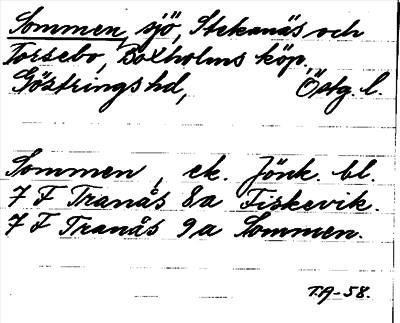 Sommen, sjö, Stekanäs och
Torsebo, Boxholms köp.
Göstrings hd, Östg. l.
Sommen, ek. Jönk. bl.
7 F Tranås 8a Fiskevik.
7 F Tranås 9a Sommen.
T.A-58.